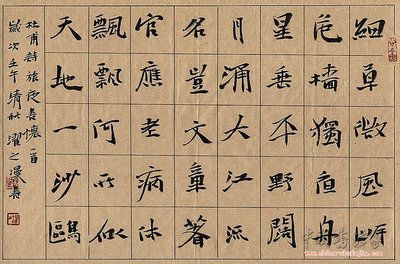 細草微風岸
危檣獨夜舟
星垂平野闊
月涌大江流
名豈文章著
官應老病休
飄飄何所似
天地一沙鷗
杜甫詩旅夜書懷一首
歲次壬午清秋